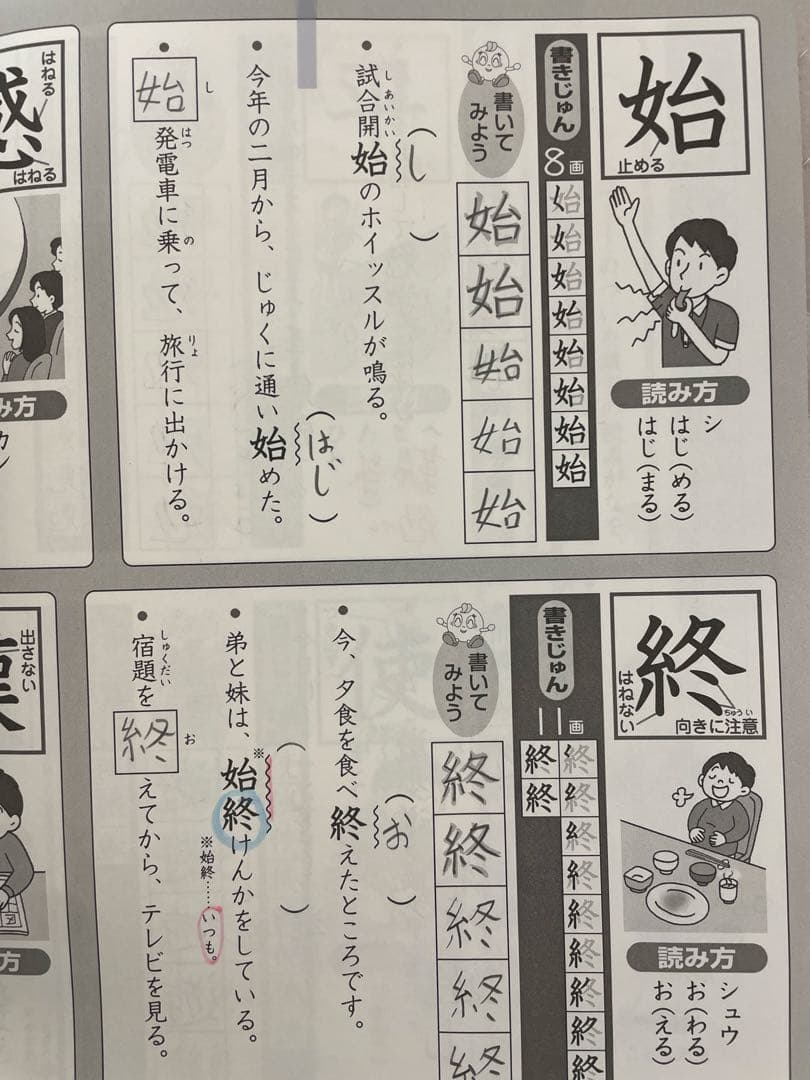 始
止める
読み方
シ
はじ(める)
はじ(まる)
書きじゅん
8画
始
始
始
始
始
始
始
始
書いて
みよう
始
始
始
始
始
(し)
試合開始のホイッスルが鳴る。
しあいかい
(はじ)
今年の二月から、じゅくに通い始めた。
始発電車に乗って、旅行に出かける。
し
はつ
の
りょ
はねる
感
はねる
み方
カン
終
はねない
向きに注意
ちゅうい
読み方
シュウ
お(わる)
お(える)
書きじゅん
11画
終
終
終
終
終
終
終
終
終
終
終
書いて
みよう
終
終
終
終
終
(お)
今、夕食を食べ終えたところです。
( )
弟と妹は、※始終けんかをしている。
※始終……いつも。
宿題を終えてから、テレビを見る。
しゅくだい
お
出さない
方